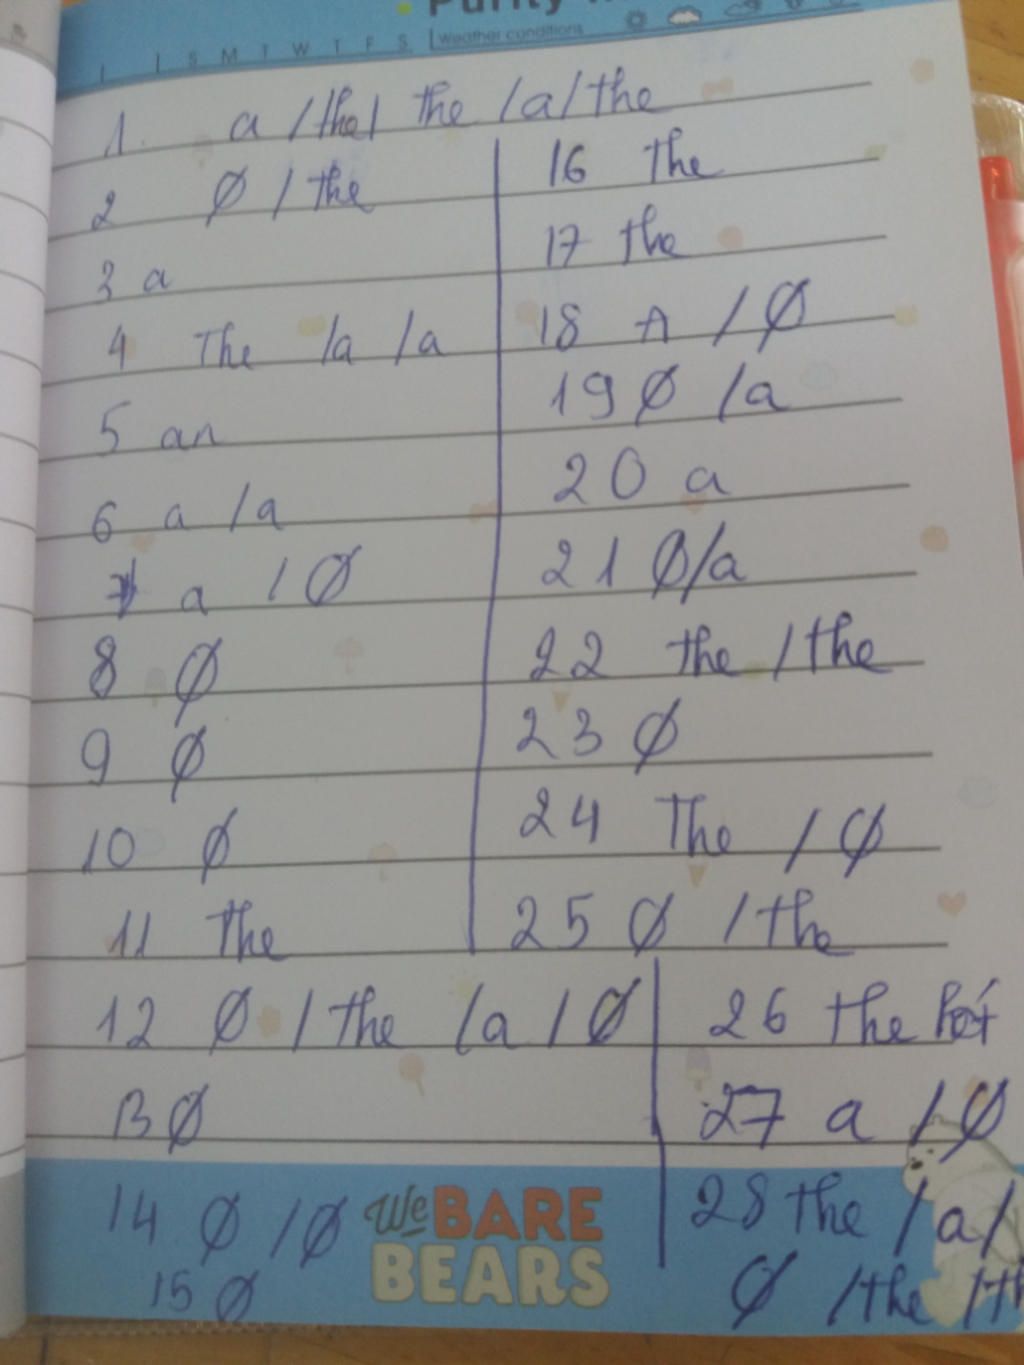 S M T W T F S Weather conditions
1. a / the / the / a / the
2 Ø / the
3 a
4 The / a / a
5 an
6 a / a
7 a / Ø
8 Ø
9 Ø
10 Ø
11 The
16 the
17 the
18 A / Ø
19 Ø / a
20 a
21 Ø/a
22 the / the
23 Ø
24 The / Ø
25 Ø / the
12 Ø / the / a / Ø
13 Ø
14 Ø / Ø
15 Ø
26 the hết
27 a / Ø
28 the / a /
Ø / the / th
We BARE
BEARS